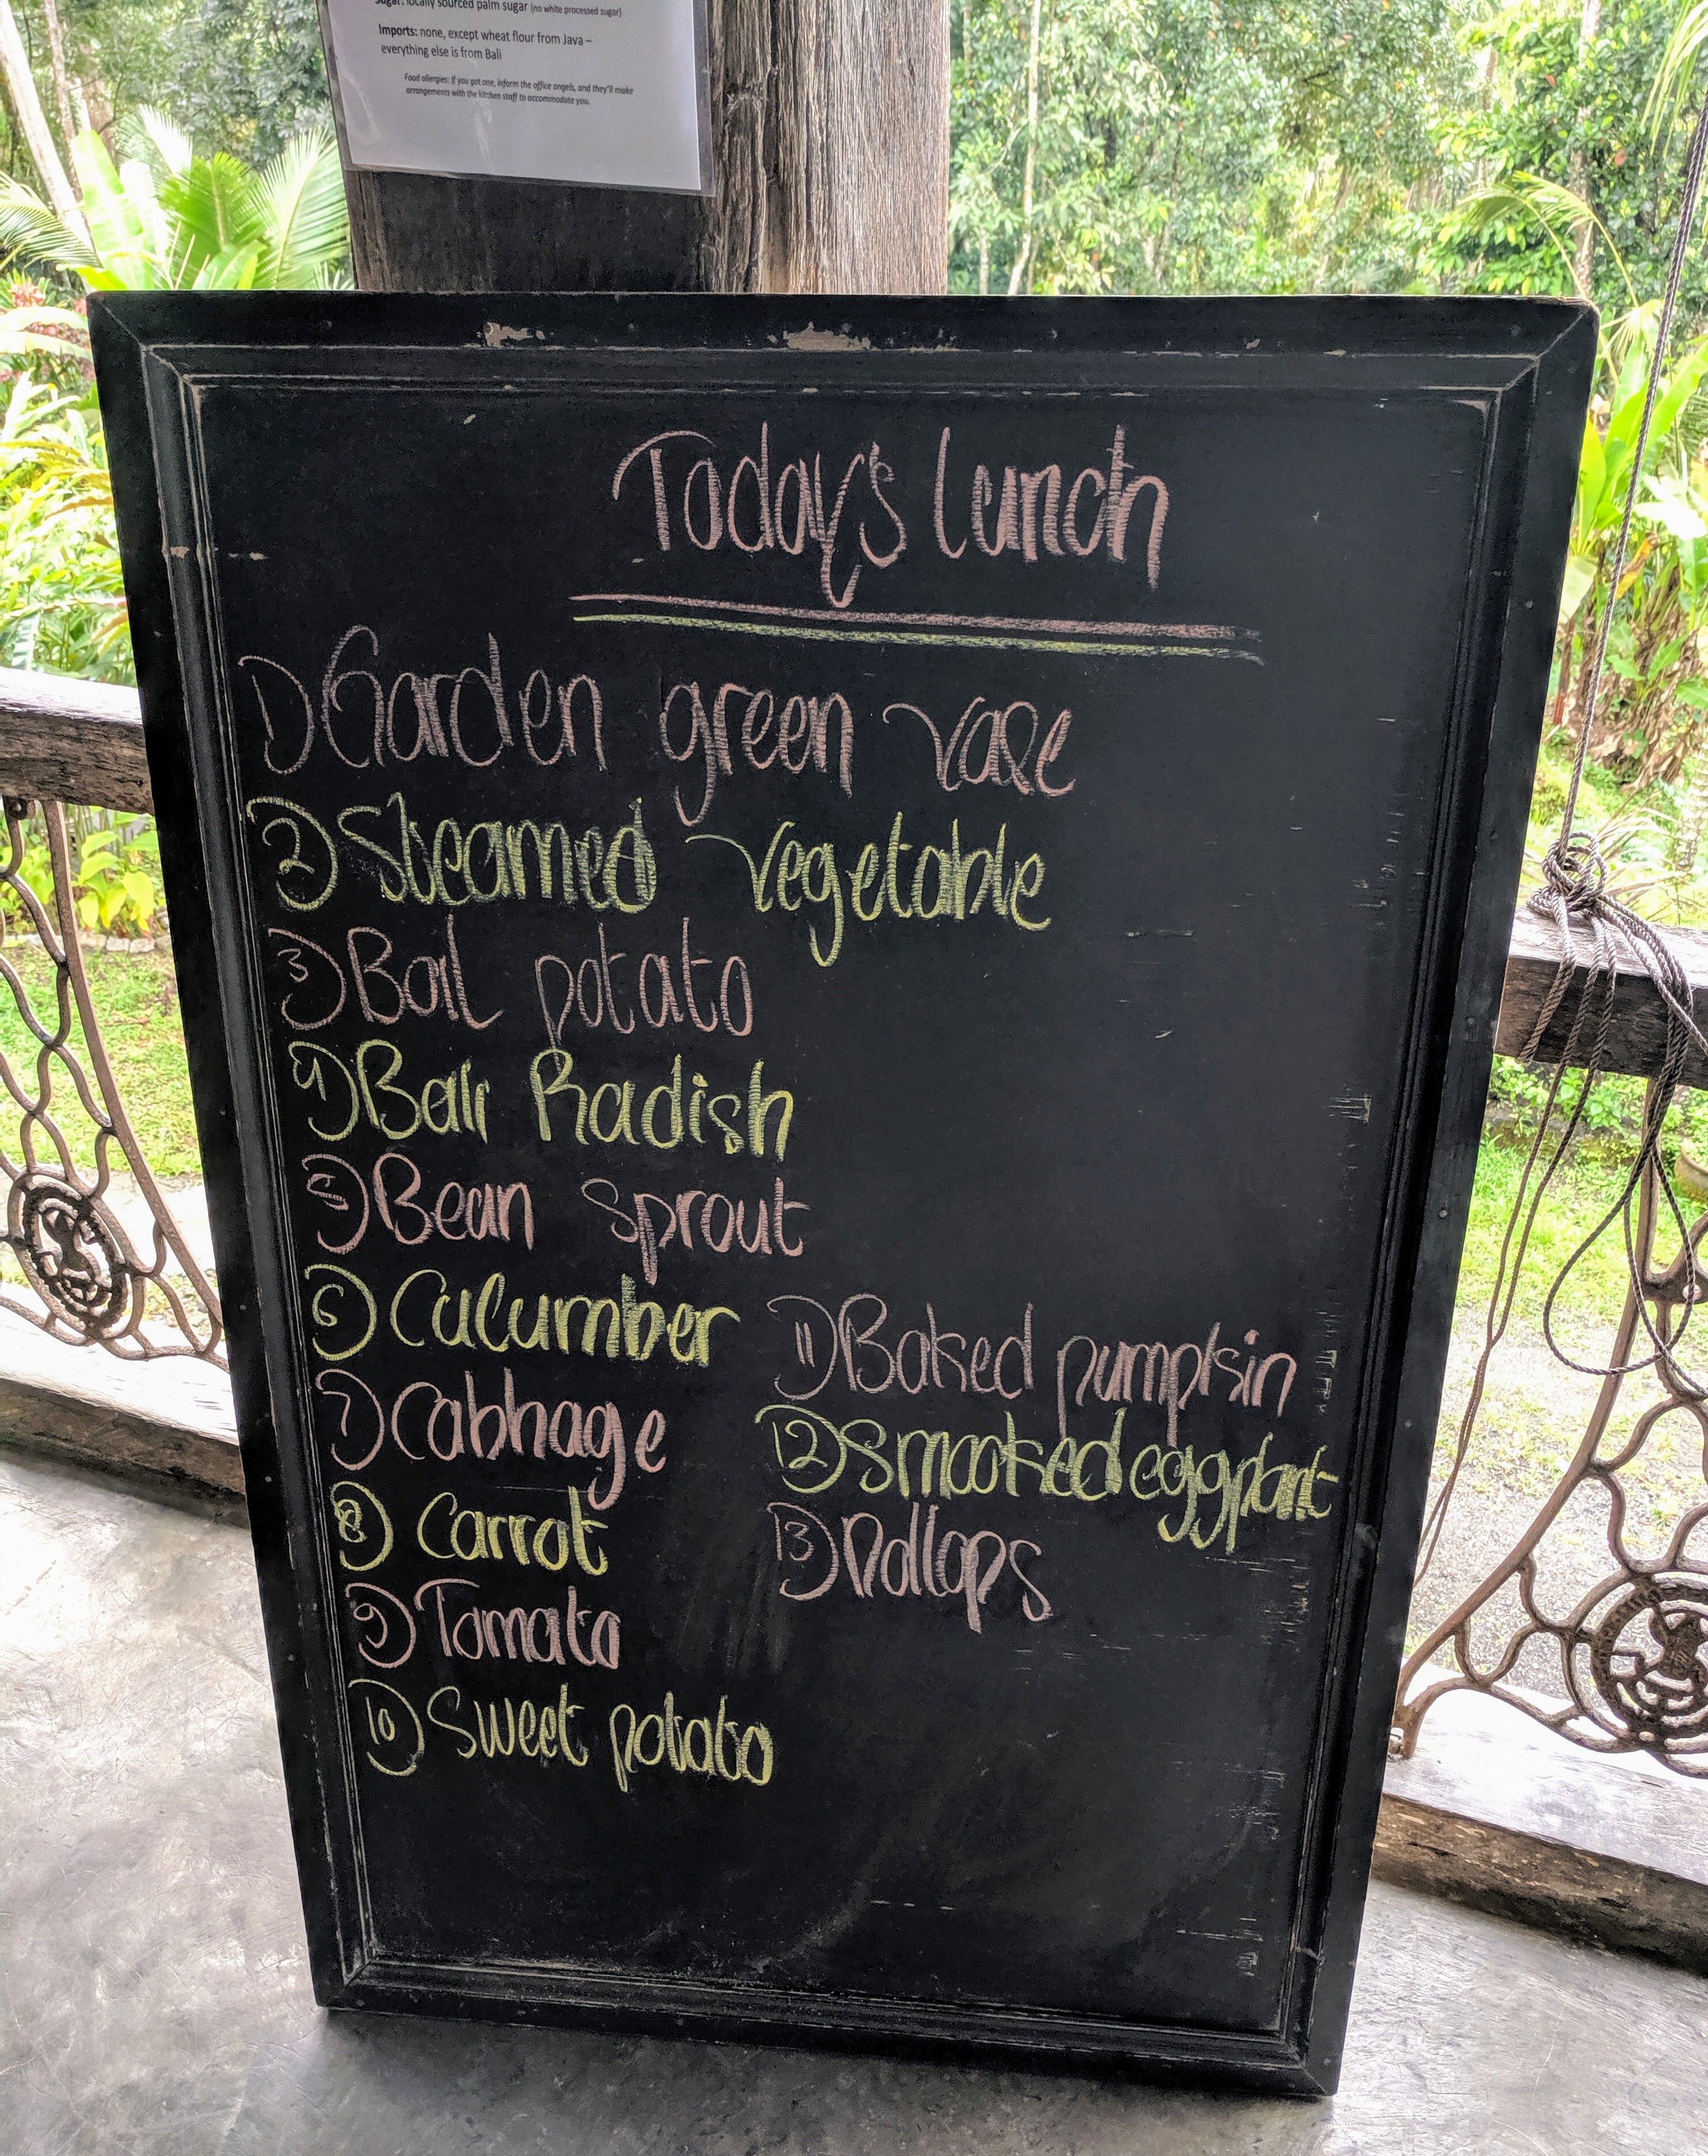 Sugar: locally sourced palm sugar (no white processed sugar)
Imports: none, except wheat flour from Java –
everything else is from Bali
Food allergies: If you got one, inform the office angels, and they'll make
arrangements with the kitchen staff to accommodate you.
Today's lunch
1) Garden green vase
2) Steamed vegetable
3) Boil potato
4) Bali Radish
5) Bean sprout
6) Cucumber
7) Cabbage
8) Carrot
9) Tomato
10) Sweet potato
11) Baked pumpkin
12) Smooked eggplant
13) Dollops